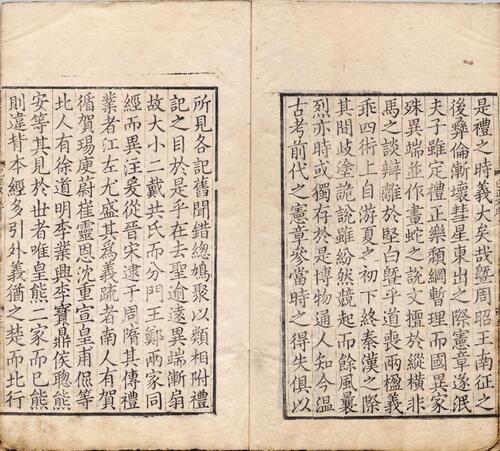 是禮之時義大矣哉曁周昭王南征之
後彝倫漸壞彗星東出之際憲章遂泯
夫子雖定禮正樂頹綱暫理而國異家
殊異端並作畫蛇之說文擅於縱橫非
馬之談辯離於堅白曁乎道喪兩楹義
乖四術上自游夏之初下終秦漢之際
其間歧塗詭說雖紛然競起而餘風曩
烈亦時或獨存於是博物通人知今溫
古考前代之憲章參當時之得失俱以
所見各記舊聞錯總鳩聚以類相附禮
記之目於是乎在去聖逾遠異端漸扇
故大小二戴共氏而分門王鄭兩家同
經而異注爰從晉宋逮于周隋其傳禮
業者江左尤盛其爲義疏者南人有賀
循賀瑒庾蔚崔靈恩沈重宣皇甫侃等
北人有徐道明李業興李寶鼎侯聰熊
安等其見於世者唯皇熊二家而已熊
則違背本經多引外義猶之楚而北行